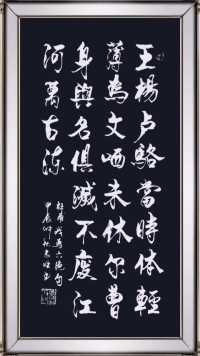 王楊卢駱當時体輕
薄為文哂未休尔曹
身與名俱滅不廢江
河萬古流
杜甫戏为六绝句
甲辰仲秋